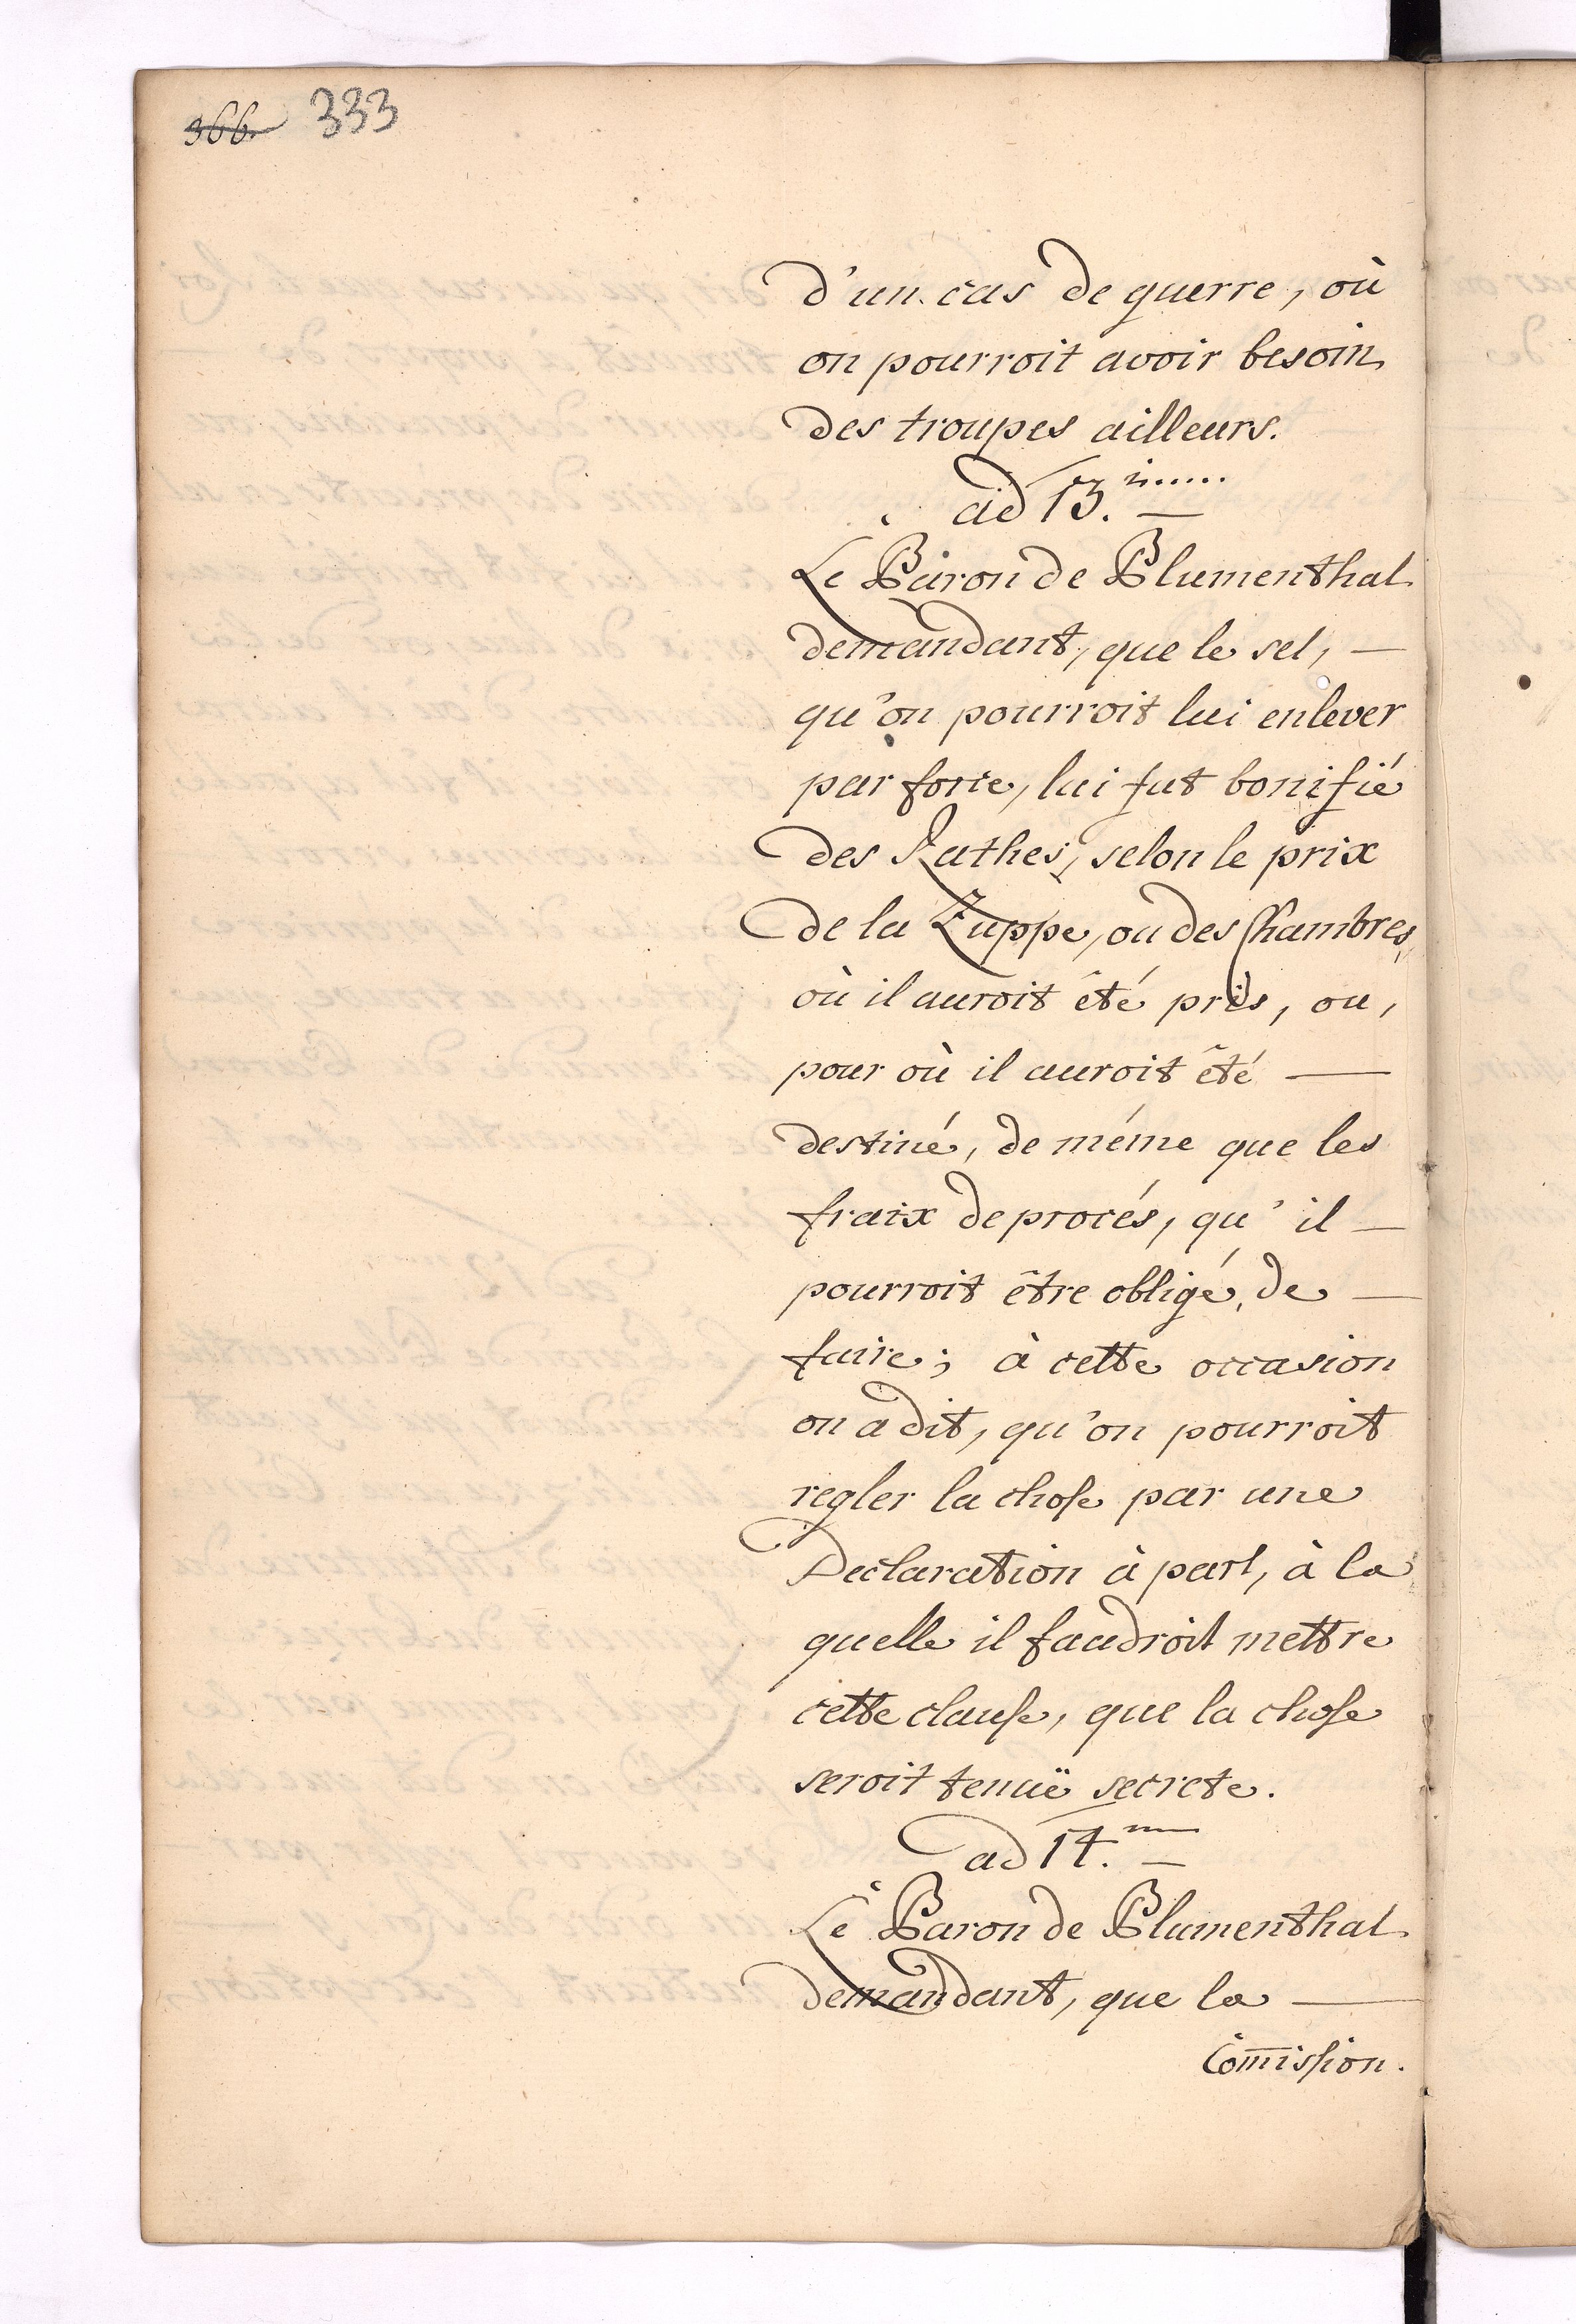 366. 333
d'un cas de guerre, où
on pourroit avoir besoin
des troupes ailleurs.
ad 13.
Le Baron de Blumenthal
demandant, que le sel, —
qu'on pourroit lui enlever
par force, lui fut bonifié
des Rathes, selon le prix
de la Zuppe, ou des Chambres,
où il auroit été pris, ou,
pour où il auroit été —
destiné, de méme que les
fraix de procés, qu'il —
pourroit être obligé, de —
faire; à cette occasion
on a dit, qu'on pourroit
regler la chose par une
Declaration à part, à la
quelle il faudroit mettre
cette clause, que la chose
seroit tenuë secrete.
ad 14.
Le Baron de Blumenthal
demandant, que la —
Com̅ission.